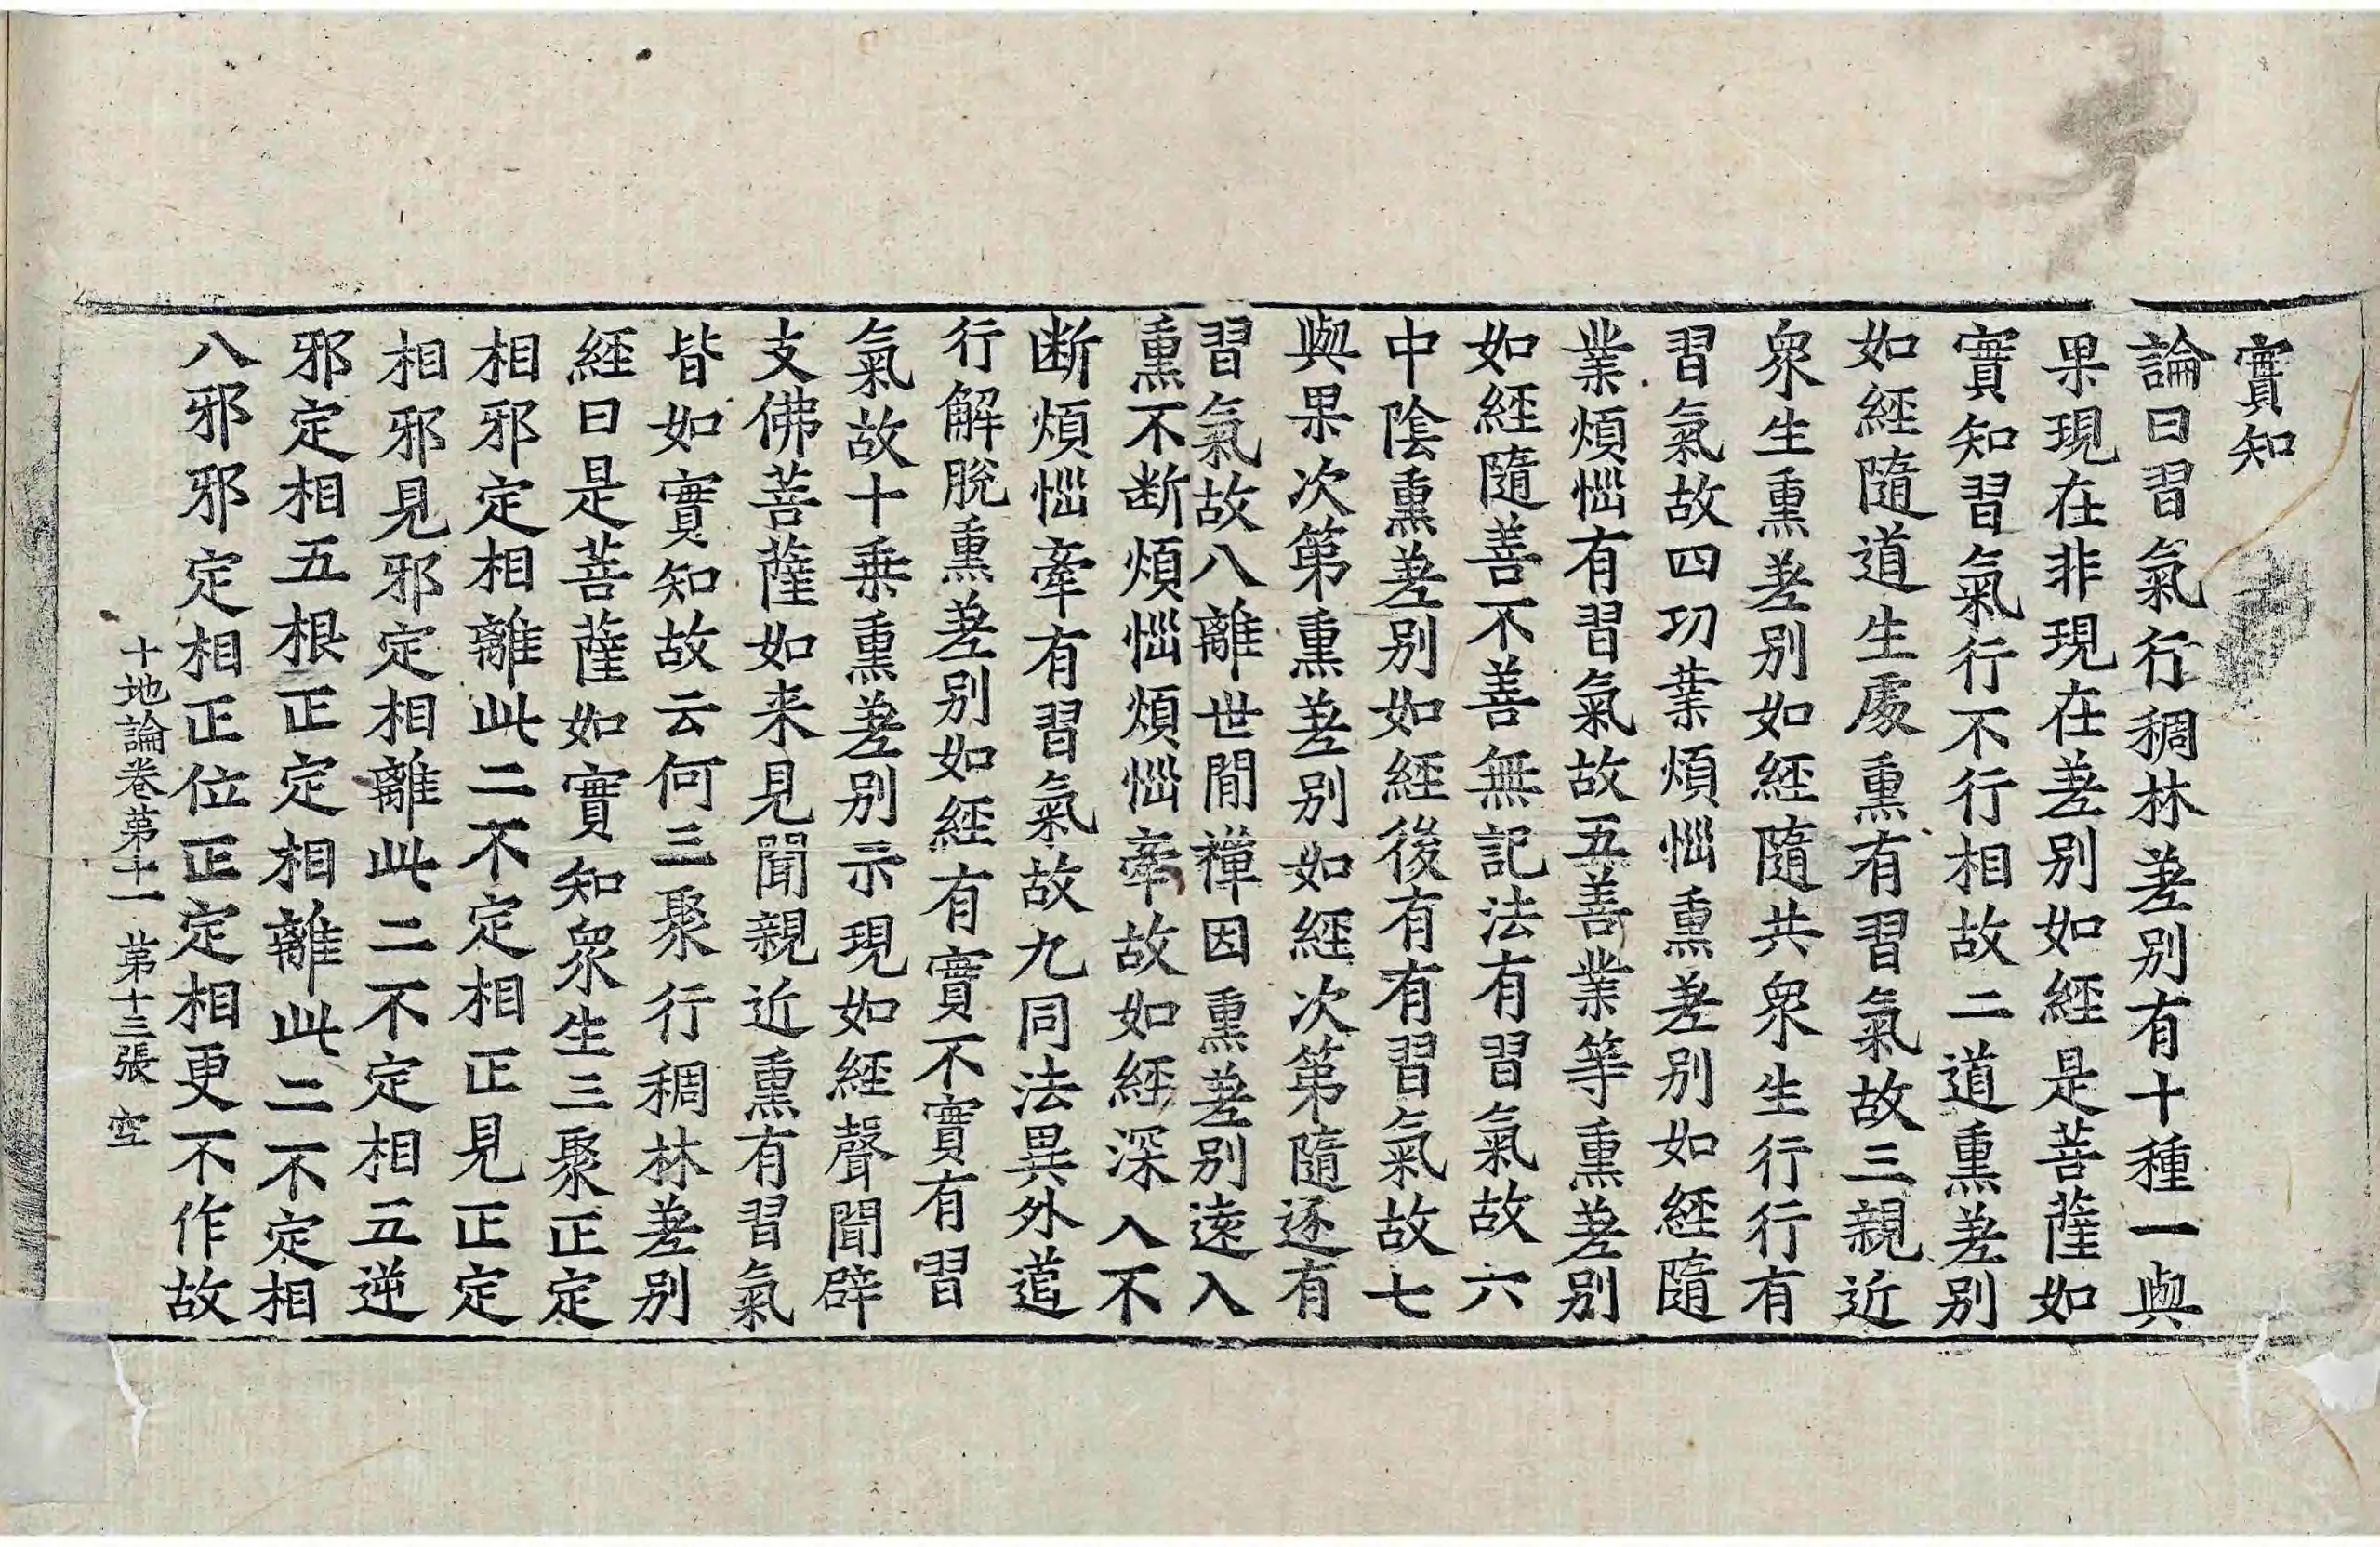 實知
論曰習氣行稠林差別有十種一與
果現在非現在差別如經是菩薩如
實知習氣行不行相故二道熏差別
如經隨道生處熏有習氣故三親近
衆生熏差別如經隨共衆生行行有
習氣故四功業煩惱熏差別如經隨
業煩惱有習氣故五善業等熏差別
如經隨善不善無記法有習氣故六
中陰熏差別如經後有有習氣故七
與果次第熏差別如經次第隨逐有
習氣故八離世間禪因熏差別遠入
熏不断煩惱煩惱牽故如經深入不
断煩惱牽有習氣故九同法異外道
行解脫熏差別如經有實不實有習
氣故十乗熏差別示現如經聲聞辟
支佛菩薩如来見聞親近熏有習氣
皆如實知故云何三聚行稠林差別
經曰是菩薩如實知衆生三聚正定
相邪定相離此二不定相正見正定
相邪見邪定相離此二不定相五逆
邪定相五根正定相離此二不定相
八邪邪定相正位正定相更不作故
十地論卷第十一 第十三張 空